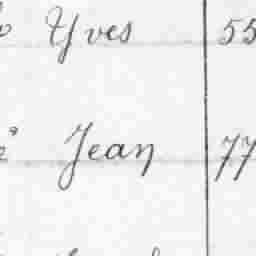 Yves 55
Jean 77